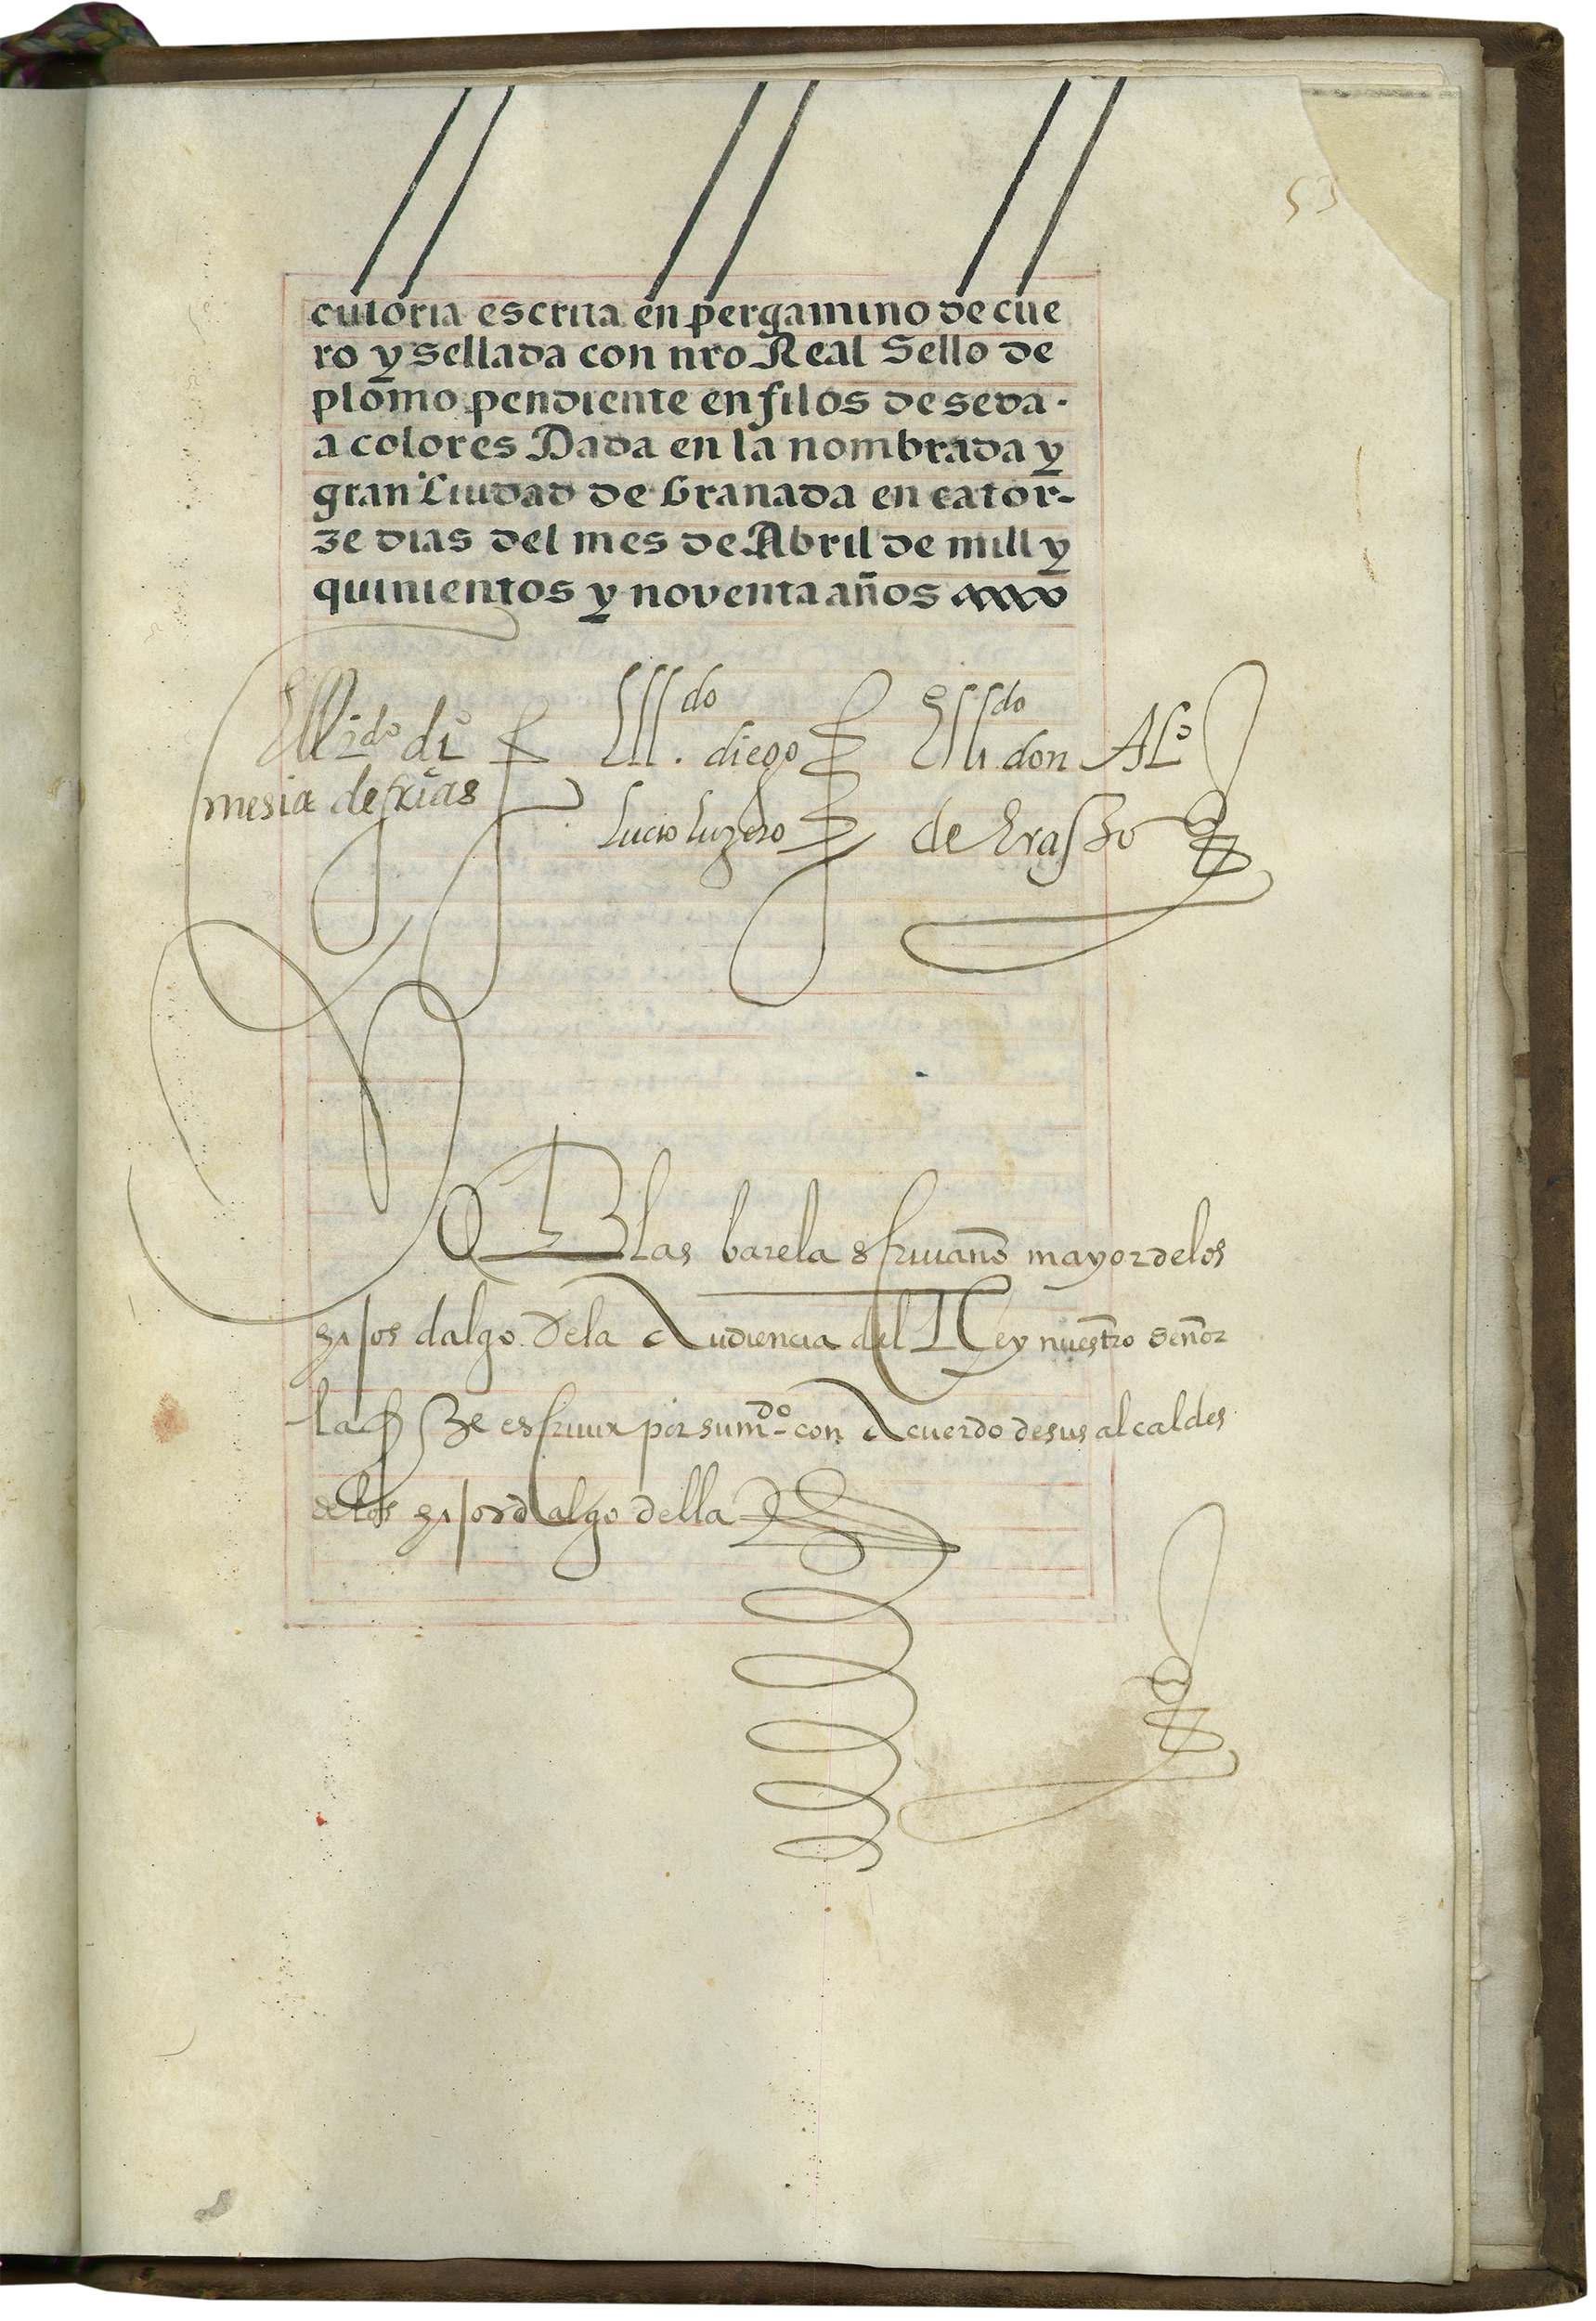 53
cutoria escrita en pergamino de cue
ro y sellada con nro Real Sello de
plomo pendiente en filos de seda.
a colores Dada en la nombrada y
gran Ciudad de Granada en cator-
ze dias del mes de Abril de mill y
quinientos y noventa años
El licdo di
mesia de frias
El lldo diego
Lucio luzero
El lldo don Alo
de Erasso
Blas barela escriuano mayor de los
hijos dalgo de la Audiencia del Rey nuestro señor
la fize escriuir por su mdo con Acuerdo de sus alcaldes
de los hijosdalgo della